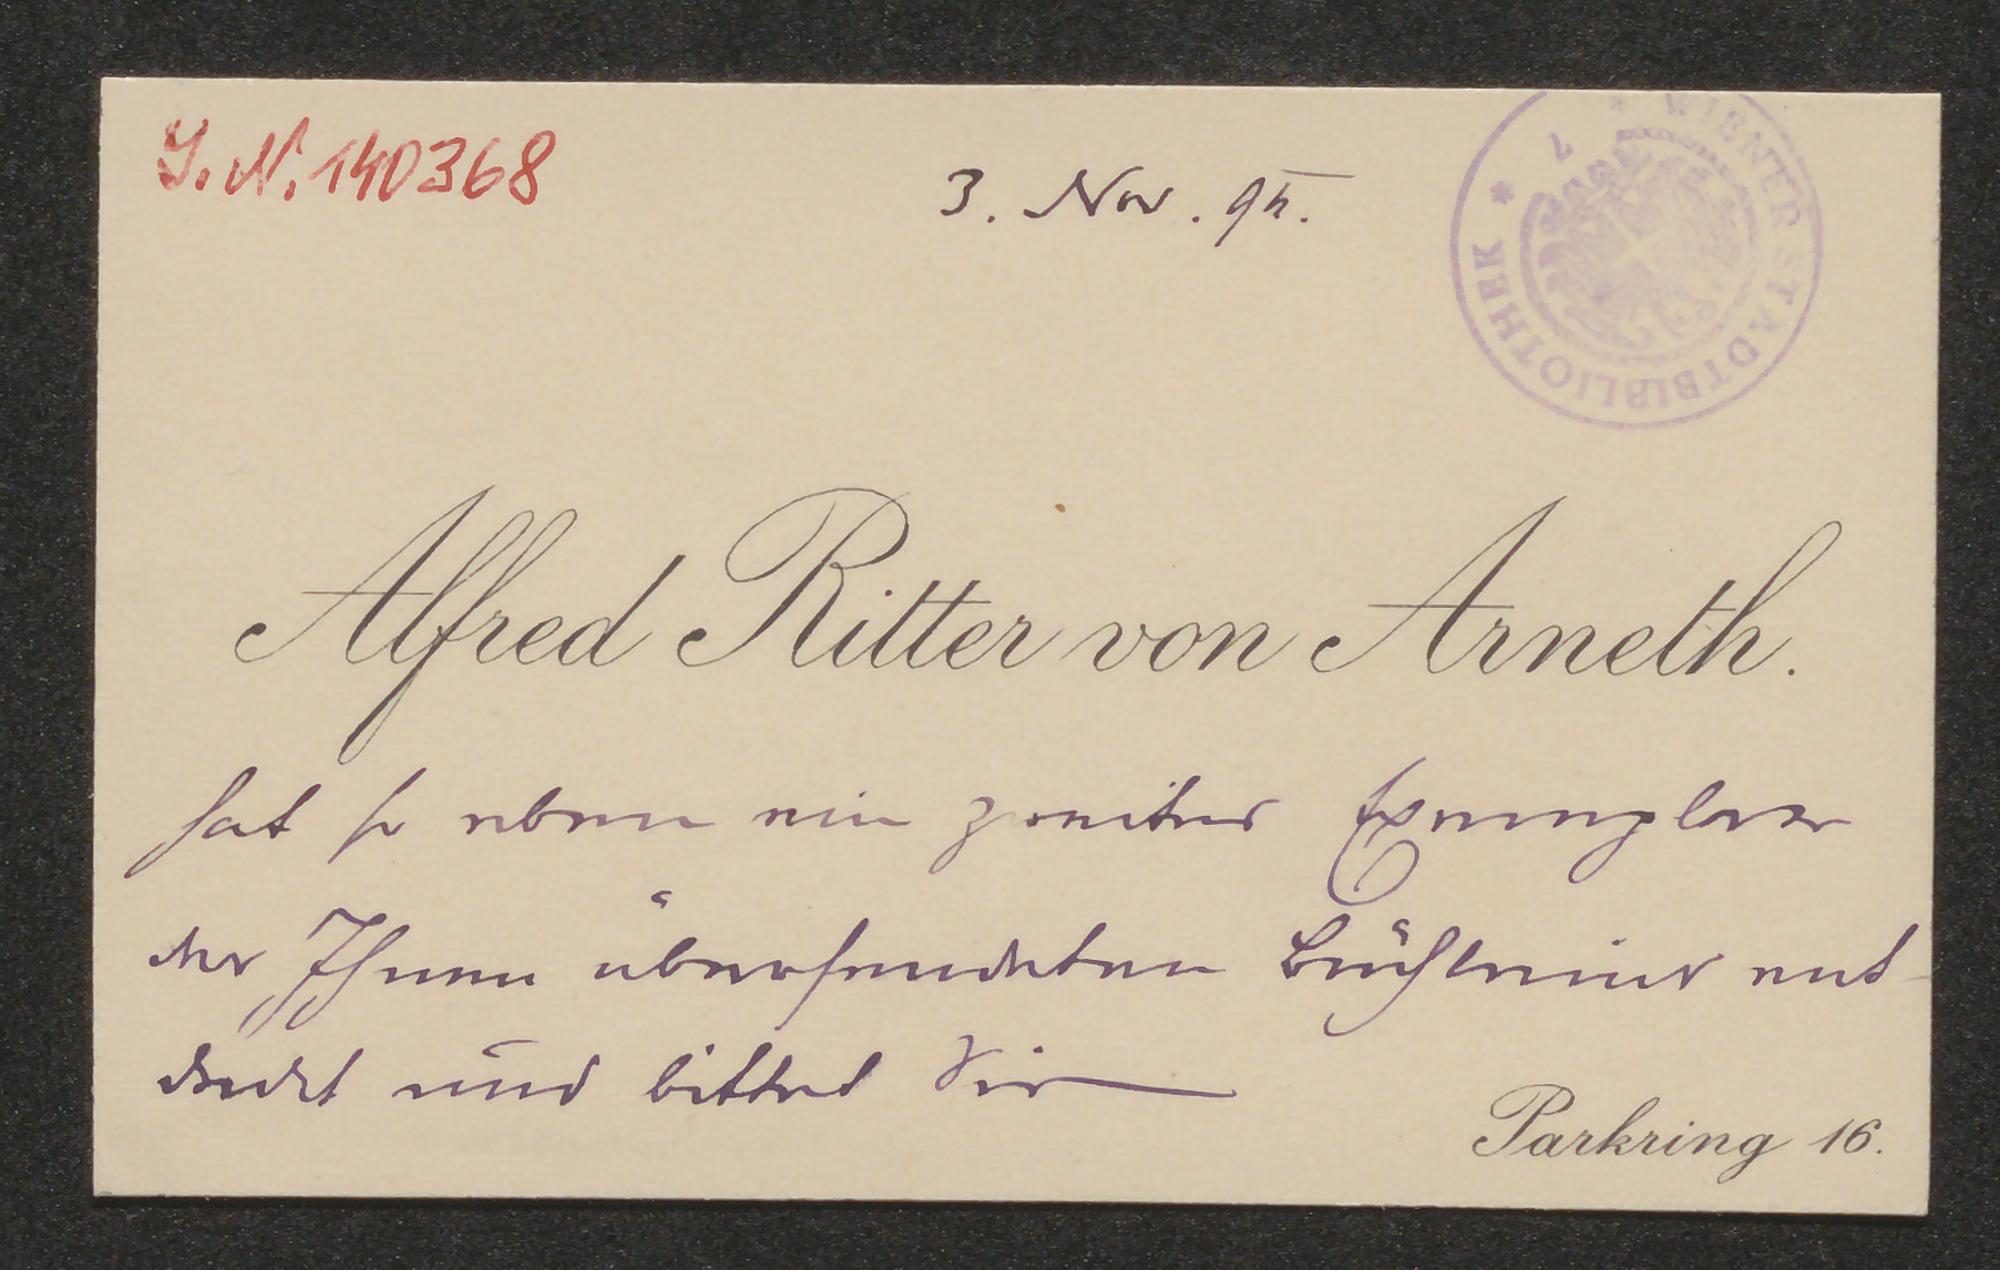 J. N. 140368
3. Nov. 95.
WIENER STADTBIBLIOTHEK
Alfred Ritter von Arneth.
hat so eben ein zweites Exemplar
des Ihnen übersendeten Büchleins ent-
deckt und bittet Sie
Parkring 16.